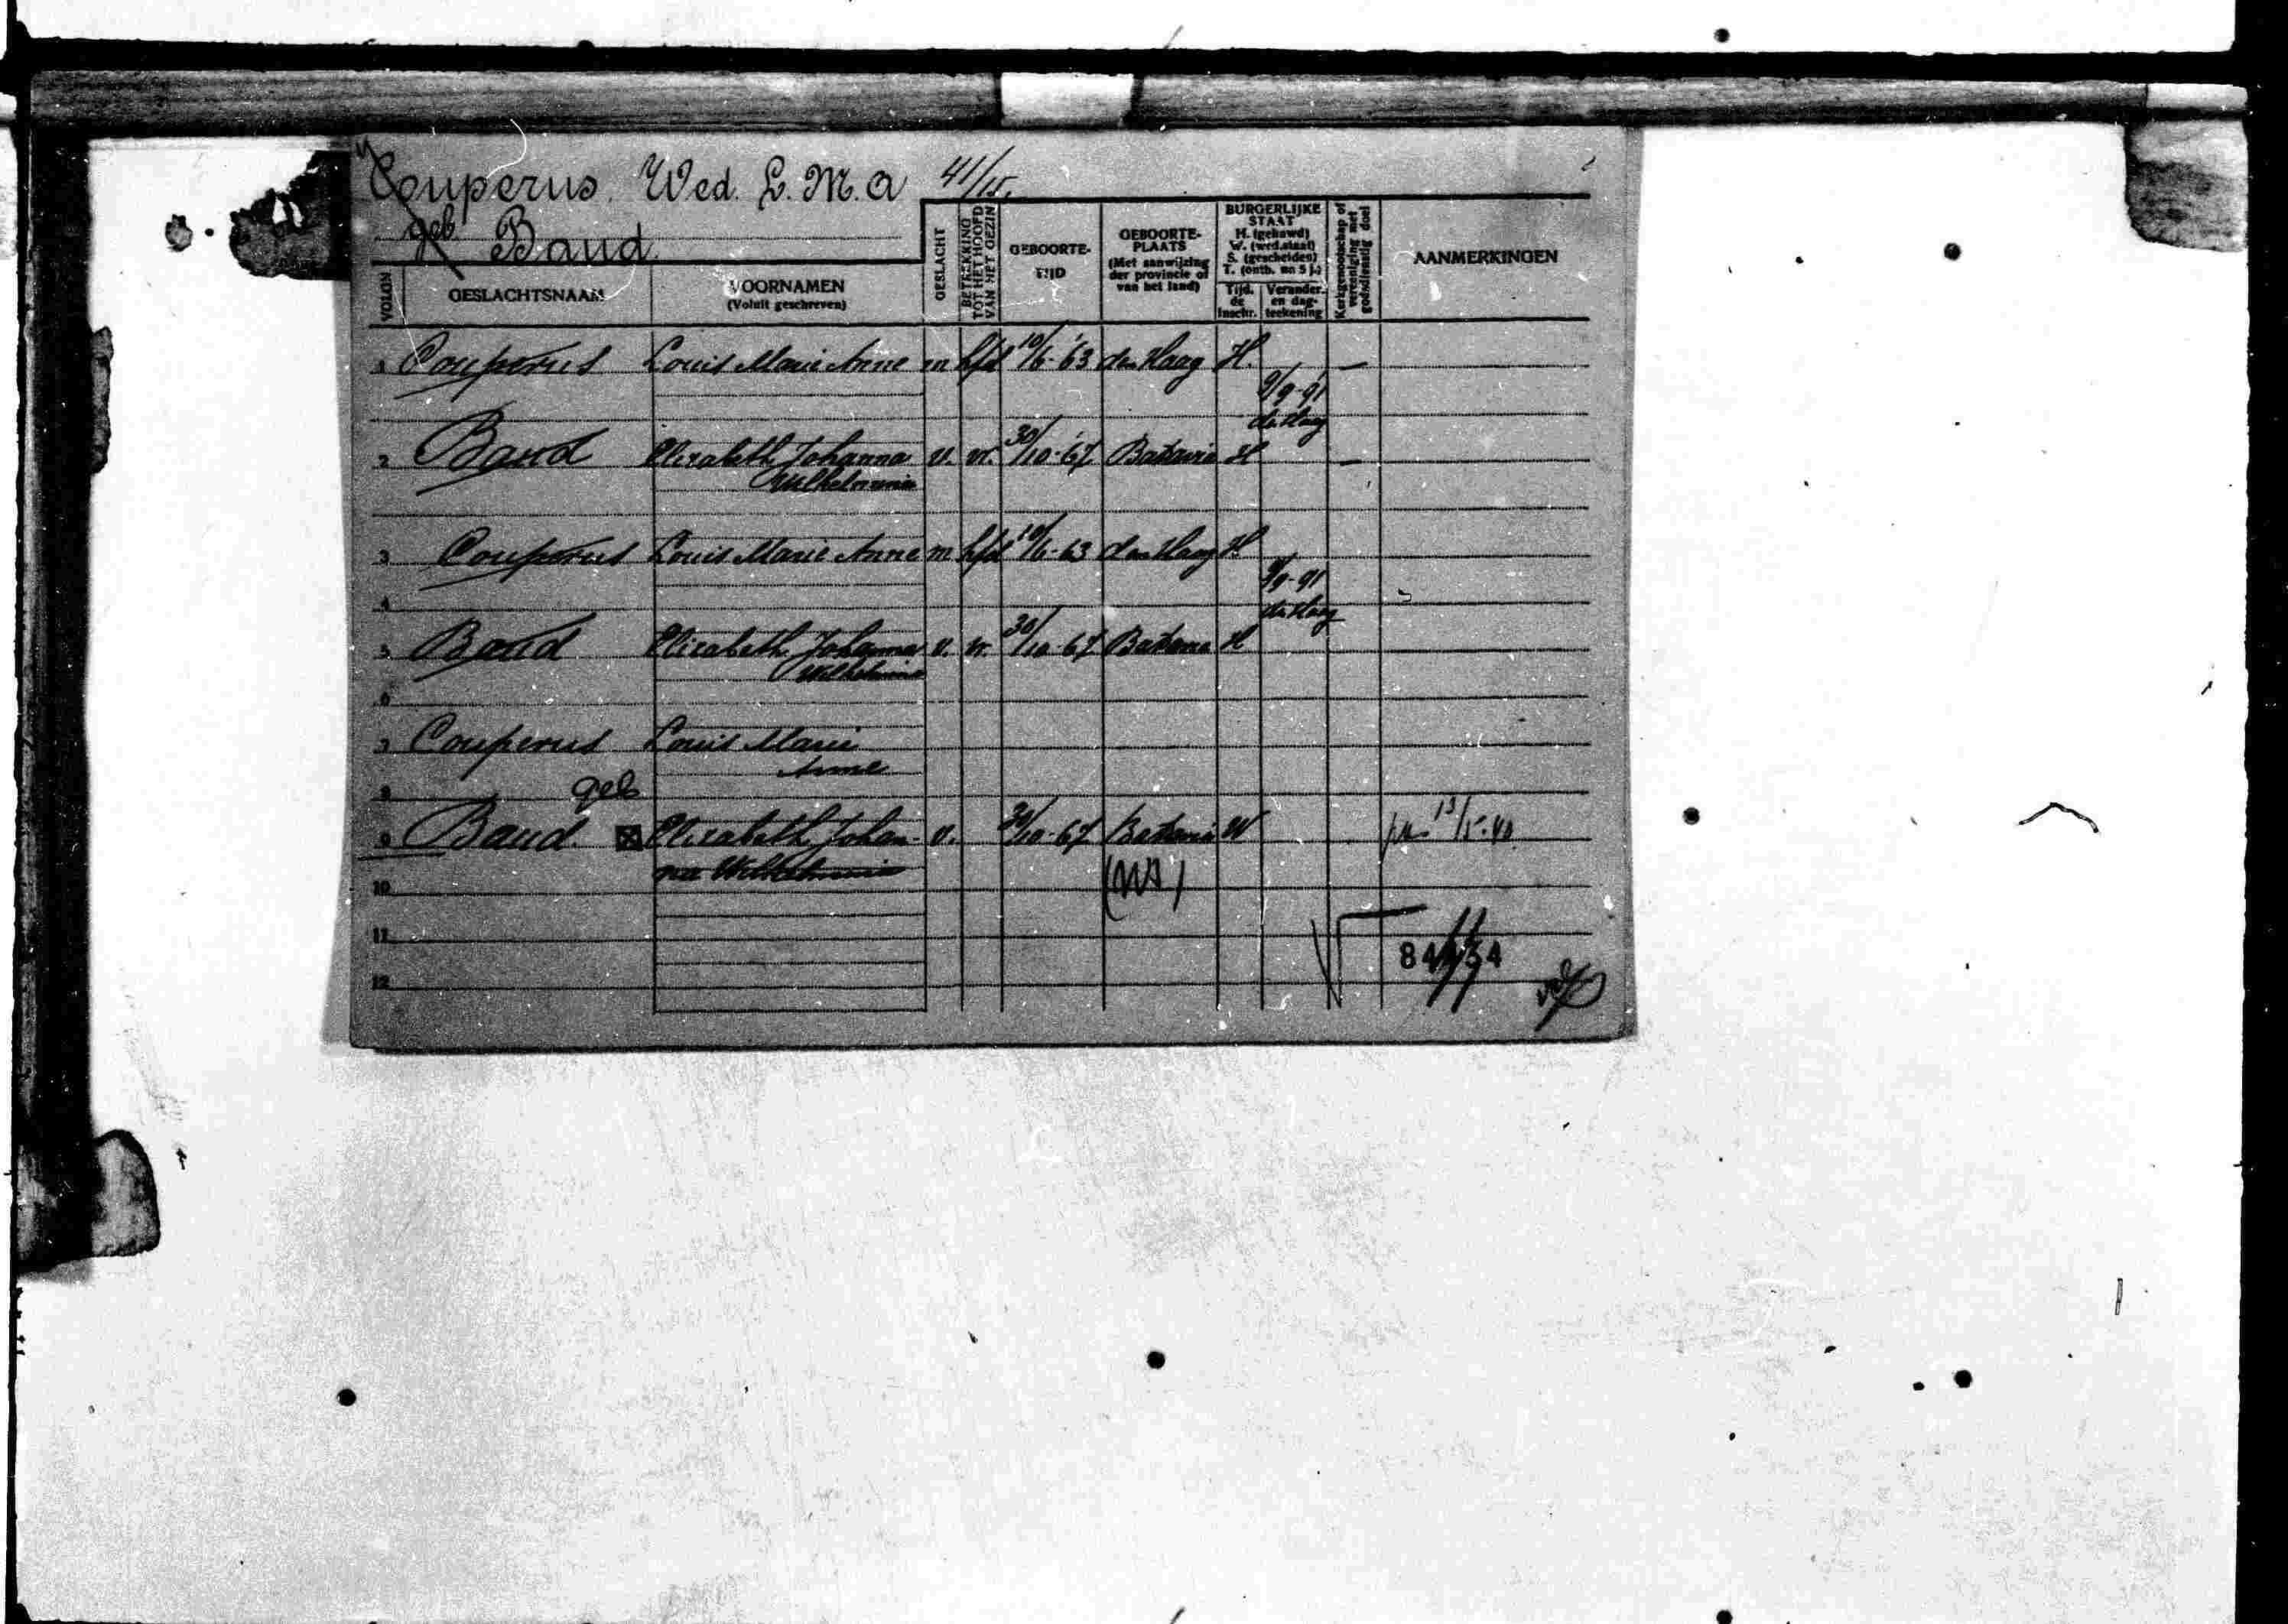 Couperus. Wed. L. M. A 41/15.
geb Baud.
VOLGN
GESLACHTSNAAM
VOORNAMEN
(Voluit geschreven)
GESLACHT
BETREKKING
TOT HET HOOFD
VAN HET GEZIN
GEBOORTE-
TIJD
GEBOORTE-
PLAATS
(Met aanwijzing
der provincie of
van het land)
BURGERLIJKE
STAAT
H. (gehuwd)
W. (wed.staat)
S. (gescheiden)
T. (ontb. na 5 j.)
Tijd.
de
inschr.
Verander.
en dag-
teekening
Kerkgenootschap of
vereeniging met
godsdienstig doel
AANMERKINGEN
1 Couperus Louis Marie Anne m hfd 10/6-'63 den Haag H. —
9/9-91
den Haag
2 Baud Elizabeth Johanna v. vr. 30/10-'67 Batavia H —
Wilhelmina
3 Couperus Louis Marie Anne m hfd 10/6-63 den Haag H
9/9-91
4 den Haag
5 Baud Elizabeth Johanna v. vr. 30/10-67 Batavia H
Wilhelmina
6
7 Couperus Louis Marie
Anne
8 geb
9 Baud. Elizabeth Johan- v. 30/10-67 Batavia W
na Wilhelmina
10
11
84434
12